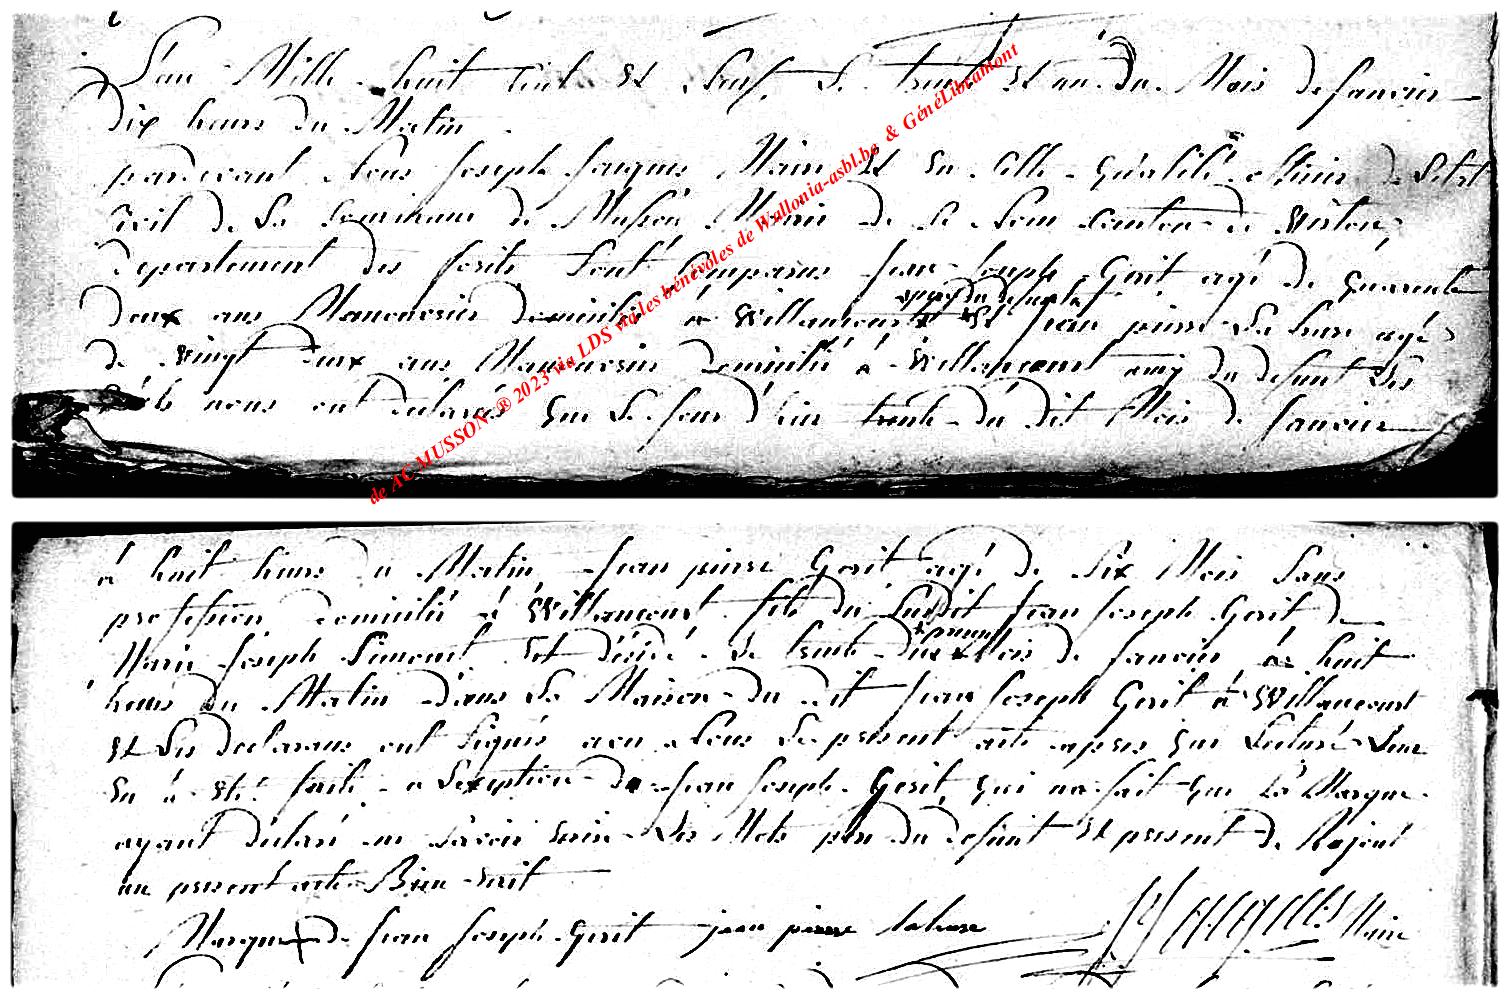 L'an Mille huit Cent Et Neuf Le trente Et un du Mois de Janvier
dix heurs du Matin
pardevant Nous Joseph Jacques Maire Et En Cette Qualité officier de L'Etat
Civil de La Commune de Musson Mairie de Ce Nom Canton de Virton
departement des forêts Sont Comparus Jean Joseph Gerit agé de quarente
pere du defunt
deux ans Manouvrier domicilié à Willancourt Et Jean pierre La hure agé
de vingt deux ans Manouvrier domicilié à Willancourt amy du defunt Les
quels nous ont declarés que Le Jour d'hier trente du dit Mois de Janvier
à huit heurs du Matin Jean pierre Gerit agé de Six Mois Sans
profession domicilié à Willancourt fils du Susdit Jean Joseph Gerit De
Marie Joseph Simonet Est décédé Le trente du Mois de Janvier à huit
heurs du Matin dans La Maison du dit Jean Joseph Gerit à Willancourt
Et Les declarans ont Signés avec Nous Le present acte apres que Lecture Leur
En à Eté faite a L'exeption de Jean Joseph Gerit qui na fait que La Marque
ayant declaré ne Savoir Ecrire Les Mots pere du defunt Et present de Rajout
au present acte Bien Ecrit
Marque de Jean Joseph Gerit jean pierre lahure Maire
de AC MUSSON ® 2023 via LDS via les bénévoles de Wallonia-asbl.be & GénéLibramont